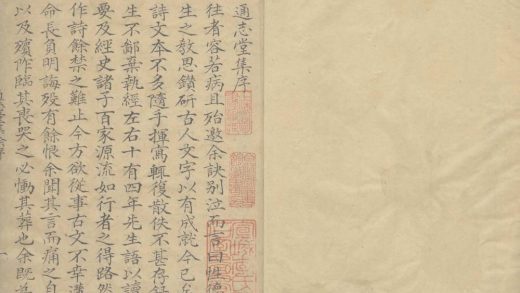 通志堂集序
往者容若病且殆邀余訣別泣而言曰性德
生之教思鑽研古人文字以有成就今已矣
詩文本不多隨手揮寫輒復散佚不甚存
生不鄙棄執經左右十有四年先生語以讀
要及經史諸子百家源流如行者之得路然
作詩餘禁之難止今方欲從事古文不幸遘
命長負明誨殁有餘恨余聞其言而痛之自
以及殯作臨其喪哭之必慟其葬也余既